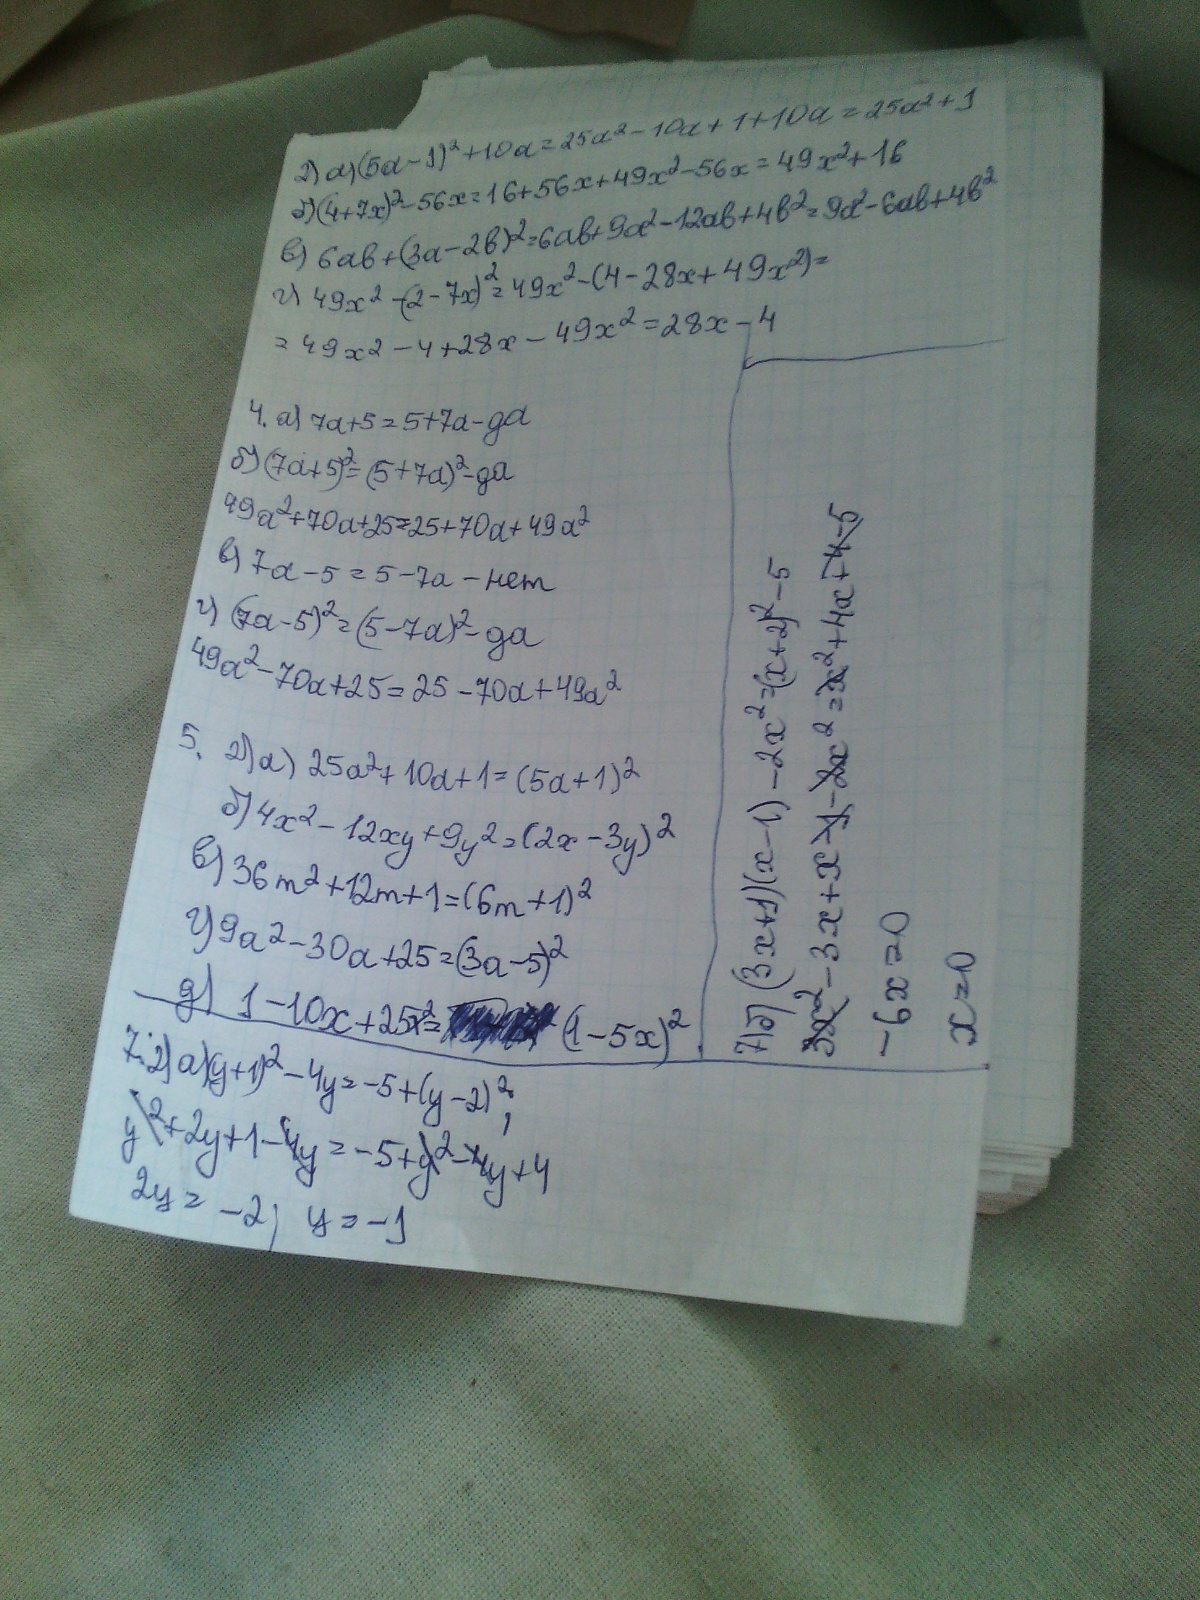 2) а) (5a-1)²+10a=25a²-10a+1+10a=25a²+1
б) (4+7x)²-56x=16+56x+49x²-56x=49x²+16
в) 6ab+(3a-2b)²=6ab+9a²-12ab+4b²=9a²-6ab+4b²
г) 49x²-(2-7x)²=49x²-(4-28x+49x²)=
=49x²-4+28x-49x²=28x-4
4. а) 7a+5=5+7a-да
б) (7a+5)²=(5+7a)²-да
49a²+70a+25=25+70a+49a²
в) 7a-5=5-7a-нет
г) (7a-5)²=(5-7a)²-да
49a²-70a+25=25-70a+49a²
5. 2) а) 25a²+10a+1=(5a+1)²
б) 4x²-12xy+9y²=(2x-3y)²
в) 36m²+12m+1=(6m+1)²
г) 9a²-30a+25=(3a-5)²
д) 1-10x+25x²= (1-5x)²
7. 2) а) (y+1)²-4y=-5+(y-2)²;
y²+2y+1-4y=-5+y²-4y+4
2y=-2; y=-1
7) б) (3x+1)(x-1)-2x²=(x+2)²-5
3x²-3x+x-1-2x²=x²+4x+4-5
-6x=0
x=0